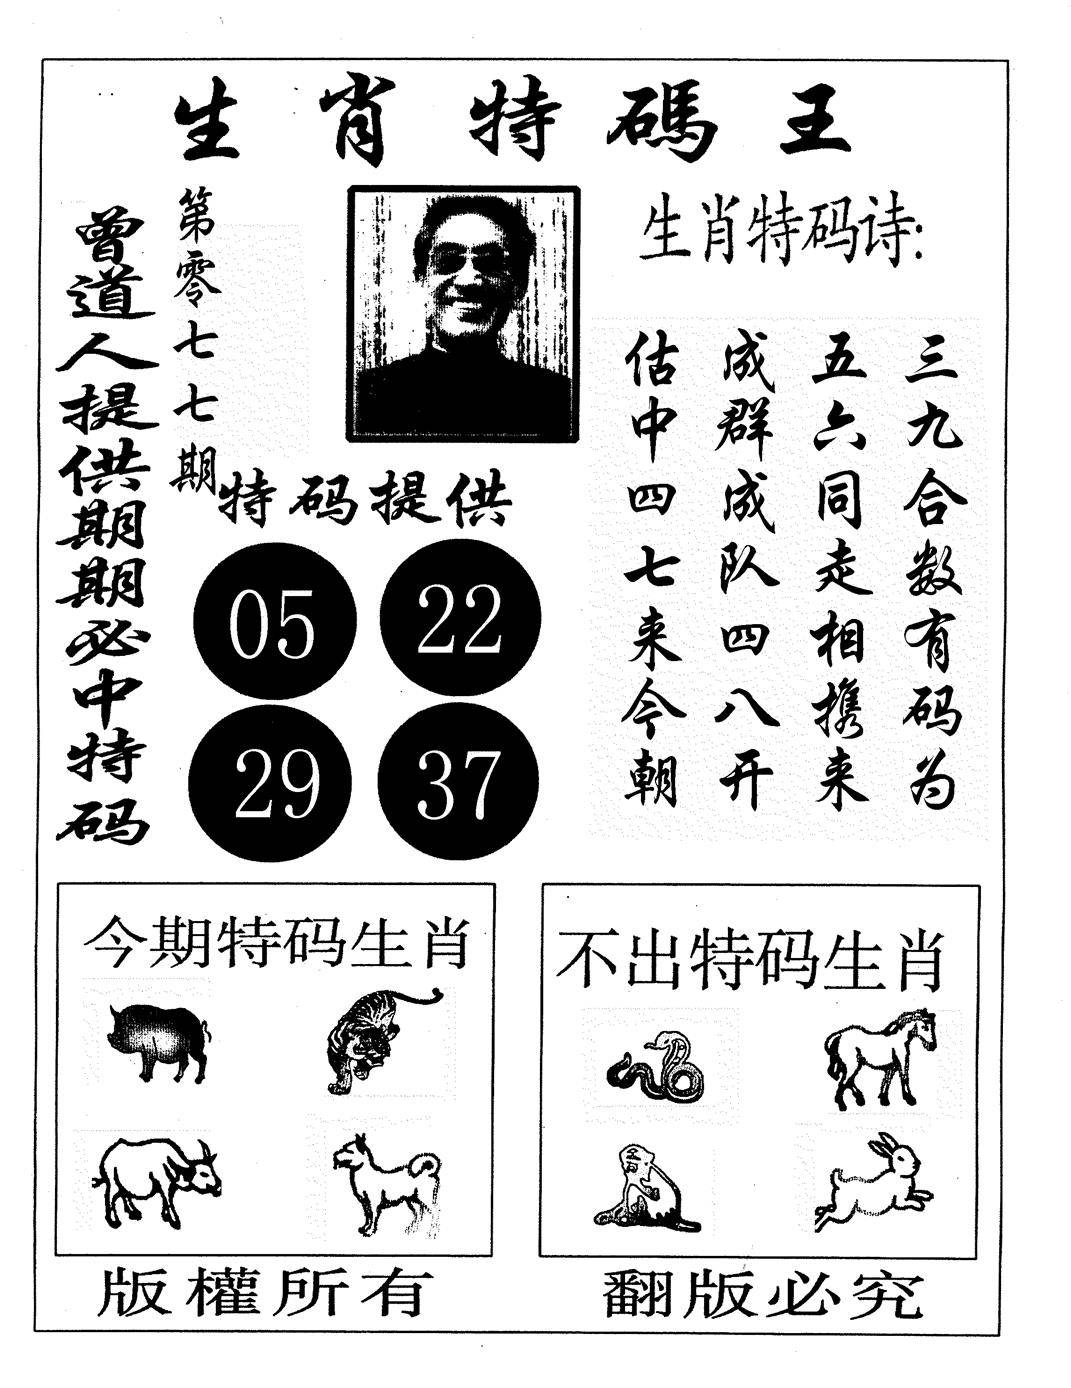 生肖特碼王
曾道人提供期期必中特码
第零七七期
特码提供
05 22
29 37
生肖特码诗:
三九合数有码为
五六同走相携来
成群成队四八开
估中四七来今朝
今期特码生肖
不出特码生肖
版權所有
翻版必究